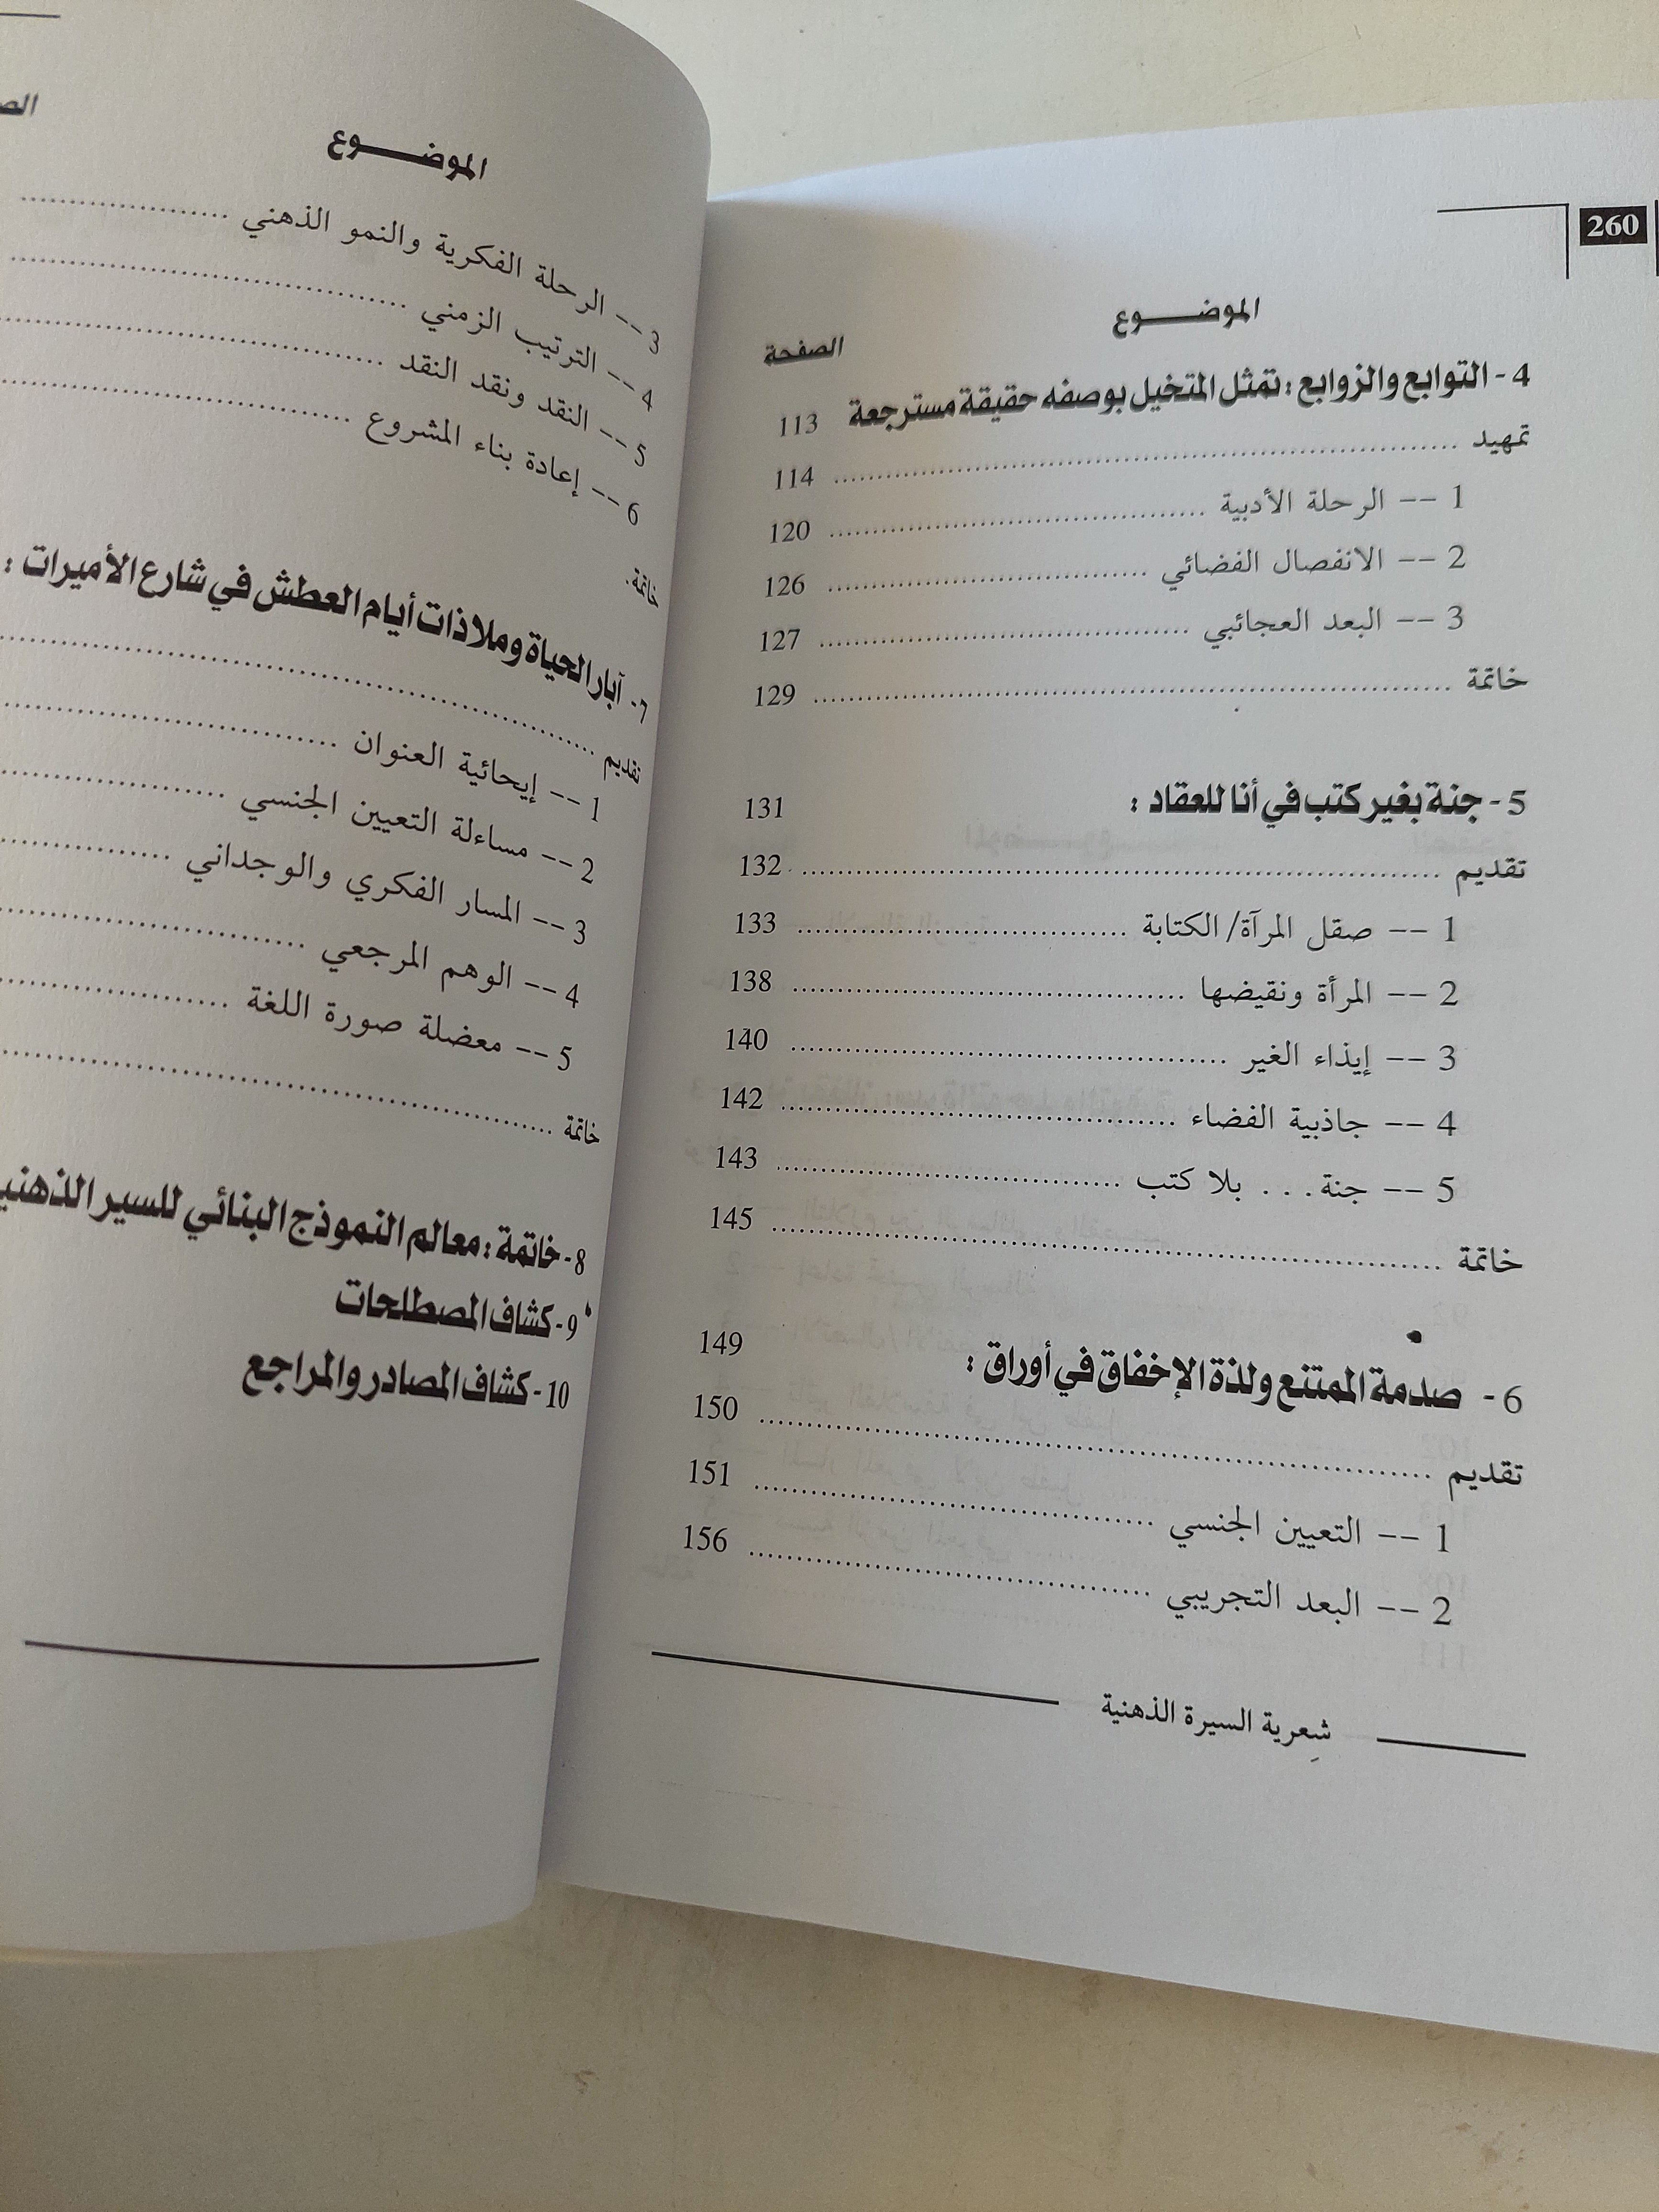 260
الموضـــوع
الصفحة
4 - التوابع والزوابع : تمثل المتخيل بوصفه حقيقة مسترجعة 113
تمهيد .......... 114
1 -- الرحلة الأدبية .......... 120
2 -- الانفصال الفضائي .......... 126
3 -- البعد العجائبي .......... 127
خاتمة .......... 129
5 - جنة بغير كتب في أنا للعقاد : 131
تقديم .......... 132
1 -- صقل المرآة/ الكتابة .......... 133
2 -- المرأة ونقيضها .......... 138
3 -- إيذاء الغير .......... 140
4 -- جاذبية الفضاء .......... 142
5 -- جنة . . . بلا كتب .......... 143
خاتمة .......... 145
6 - صدمة الممتنع ولذة الإخفاق في أوراق : 149
تقديم .......... 150
1 -- التعيين الجنسي .......... 151
2 -- البعد التجريبي .......... 156
شِعرية السيرة الذهنية
الموضـــوع
3 -- الرحلة الفكرية والنمو الذهني ..........
4 -- الترتيب الزمني ..........
5 -- النقد ونقد النقد ..........
6 -- إعادة بناء المشروع ..........
خاتمة.
7- آبار الحياة وملاذات أيام العطش في شارع الأميرات :
تقديم ..........
1 -- إيحائية العنوان ..........
2 -- مساءلة التعيين الجنسي ..........
3 -- المسار الفكري والوجداني ..........
4 -- الوهم المرجعي ..........
5 -- معضلة صورة اللغة ..........
خاتمة ..........
8- خاتمة : معالم النموذج البنائي للسير
9- كشاف المصطلحات
10- كشاف المصادر والمراجع